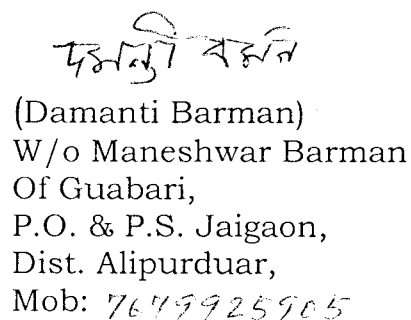 দমন্তী বর্মন
(Damanti Barman)
W/o Maneshwar Barman
Of Guabari,
P.O. & P.S. Jaigaon,
Dist. Alipurduar,
Mob: 7679925905